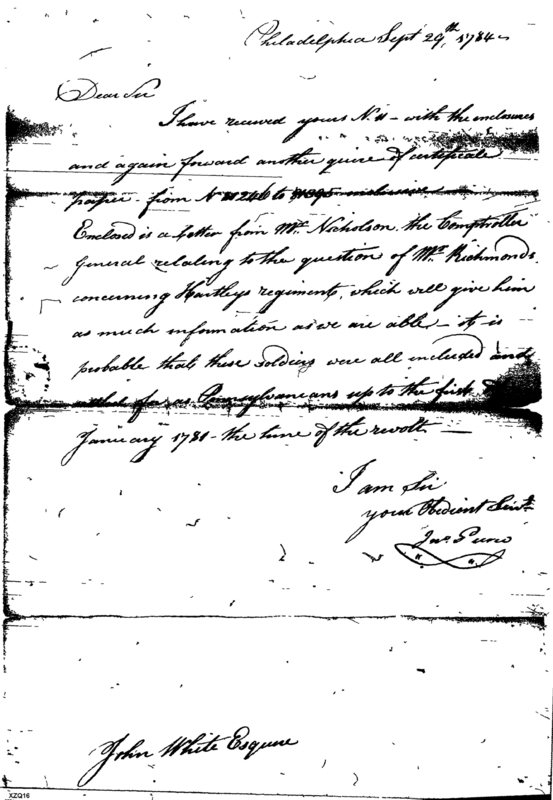 Philadelphia Sept 29th, 1784
Dear Sir
I have received yours N. 11 - with the enclosures
and again forward another quire of certificate
paper - from N to inclusive
Enclosed is a Letter from Mr. Nicholson the Comptroller
General relating to the question of Mr. Richmonds
concerning Hartleys regiment, which will give him
as much information as we are able - it is
probable that these soldiers were all included and
for as Pennsylvanians up to the first
January 1781 - the time of the revolt. -
I am Sir
your Obedient Servt.
Jno Pierce
John White Esquire
XZQ16